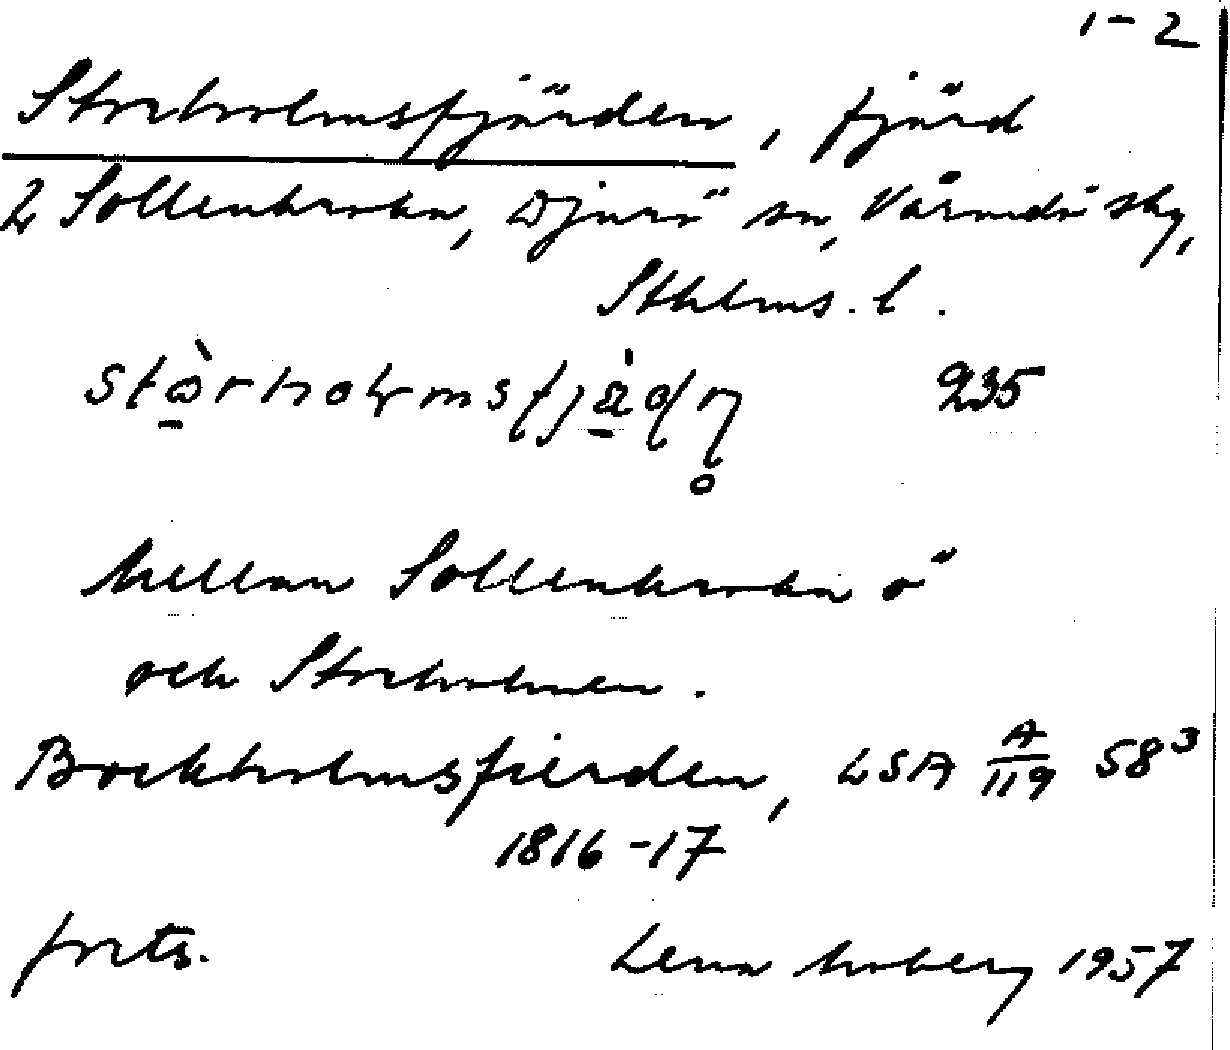 1-2
Storholmsfjärden, fjärd
2 Sollenkroka, Djurö sn, Värmdö skg,
Sthlms. l.
235
Mellan Sollenkroka ö
och Storholmen.
Bockholmsfierden, LSA A/119 58³
1816-17
forts. Lena Moberg 1957